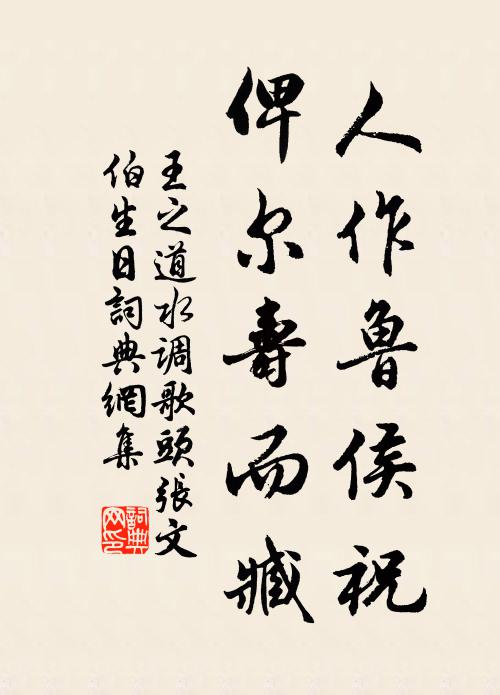 人作鲁侯祝
俾尔寿而臧
王之道水调歌頭張文
伯生日詞典網集
詞典
网印